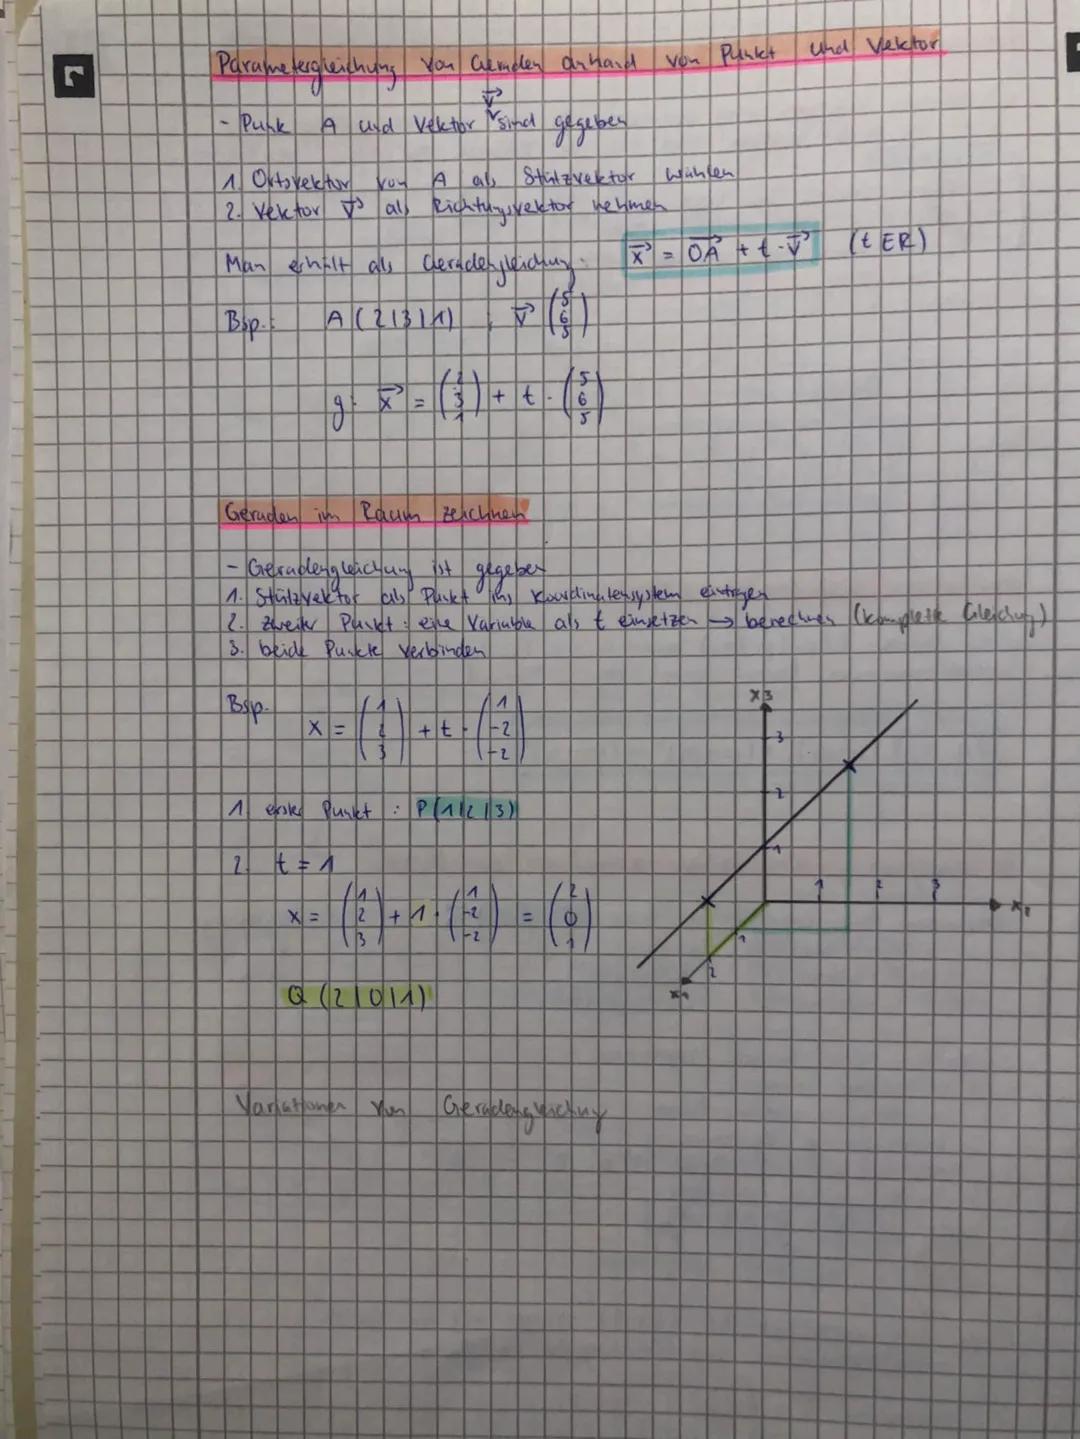 Parametergleichung von Geraden anhand von Punkt und Vektor
- Punk A und Vektor v⃗ sind gegeben
1. Ortsvektor von A als Stützvektor wählen
2. Vektor v⃗ als Richtungsvektor nehmen
Man erhält als Geradengleichung: x⃗ = OA⃗ + t · v⃗ (t ∈ R)
Bsp.: A (2|3|1) , v⃗ (5 6 5)
g: x⃗ = (2 3 1) + t · (5 6 5)
Geraden im Raum zeichnen
- Geradengleichung ist gegeben
1. Stützvektor als Punkt ins Koordinatensystem eintragen
2. zweiter Punkt: eine Variable als t einsetzen → berechnen (komplette Gleichung)
3. beide Punkte verbinden
Bsp. x = (1 2 3) + t · (1 -2 -2)
1. erster Punkt : P(1|2|3)
2. t = 1
x = (1 2 3) + 1 · (1 -2 -2) = (2 0 1)
Q (2|0|1)
x3
3
2
1
1 2 3
x2
1
2
x1
Variationen von Geradengleichung